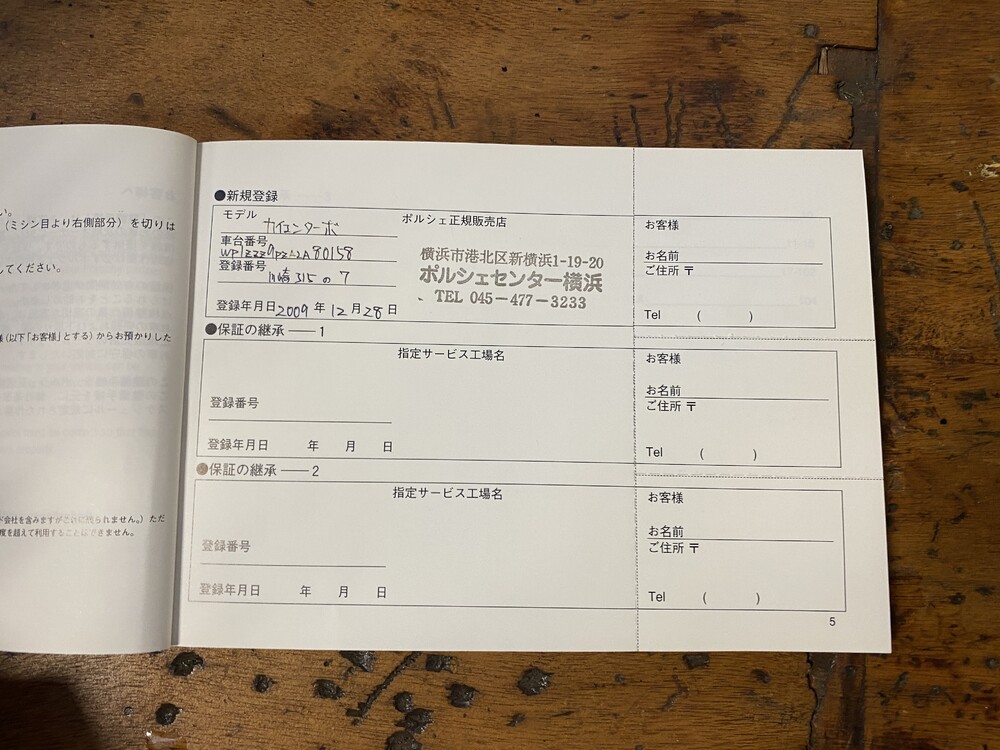 い。
（ミシン目より右側部分）を切りは
してください。
（以下「お客様」とする）からお預かりした
会社を含みますがこの
られません。）ただ
度を超えて利用することはできません。
●新規登録
モデル
カイエンターボ
車台番号
登録番号
川崎 315 の 7
登録年月日 2009 年 12 月 28 日
ポルシェ正規販売店
横浜市港北区新横浜1-19-20
ポルシェセンター横浜
TEL 045-477-3233
お客様
お名前
ご住所 〒
Tel ( )
●保証の継承 —— 1
指定サービス工場名
登録番号
登録年月日 年 月 日
お客様
お名前
ご住所 〒
Tel ( )
●保証の継承 —— 2
指定サービス工場名
登録番号
登録年月日 年 月 日
お客様
お名前
ご住所 〒
Tel ( )
5